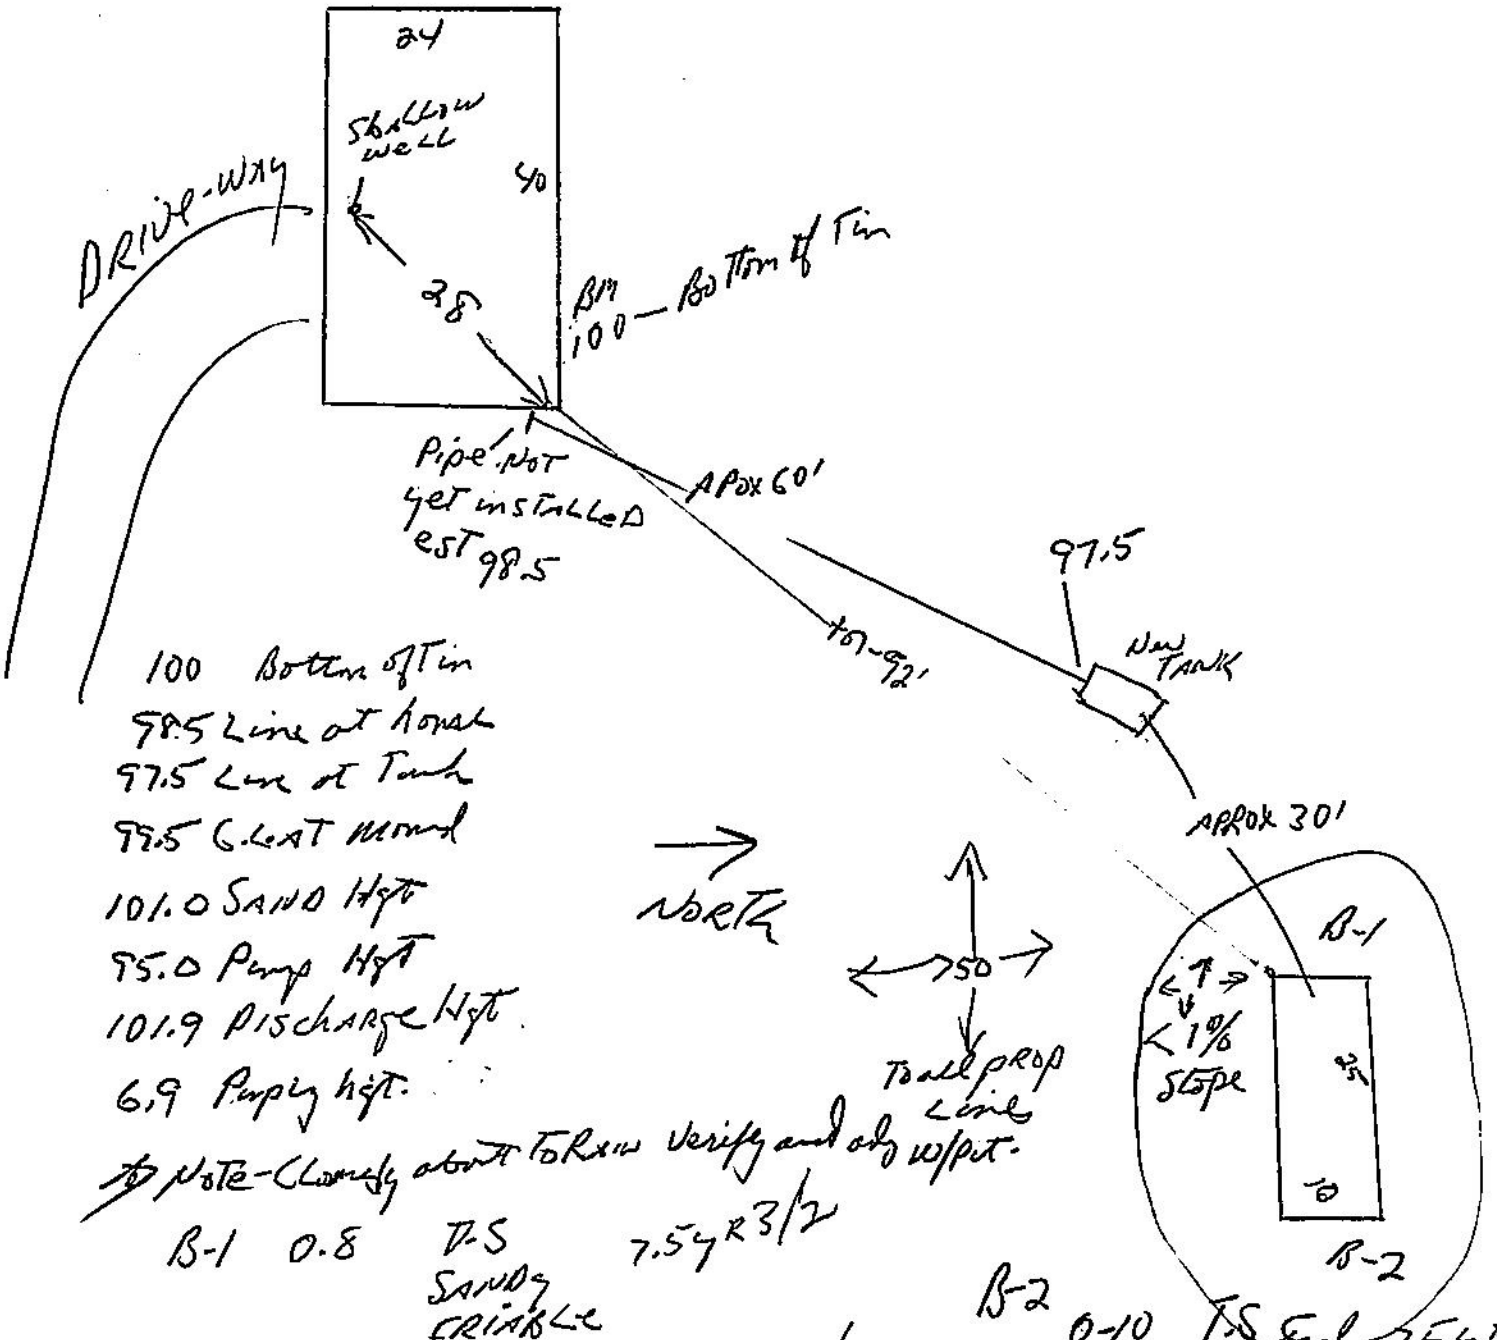 24
Shallow
well
40
Drive-Way
28
BM
100 — Bottom of Tin
Pipe Not
yet installed
est 98.5
APox 60'
97.5
New
TANK
92'
100 Bottom of Tin
98.5 Line at house
97.5 Line at Tank
99.5 G.L. AT Mound
101.0 SAND Hgt
95.0 Pump Hgt
101.9 Discharge Hgt.
6.9 Pumping hgt.
NORTH
>50
To all prop
Lines
APROX 30'
B-1
<1%
Slope
25
10
B-2
Note - Cloudy about To Rain Verify and adj w/
B-1 0.8 T.S 7.5yR 3/2
SANDy
FRIABLE
B-2
0-10 T.S